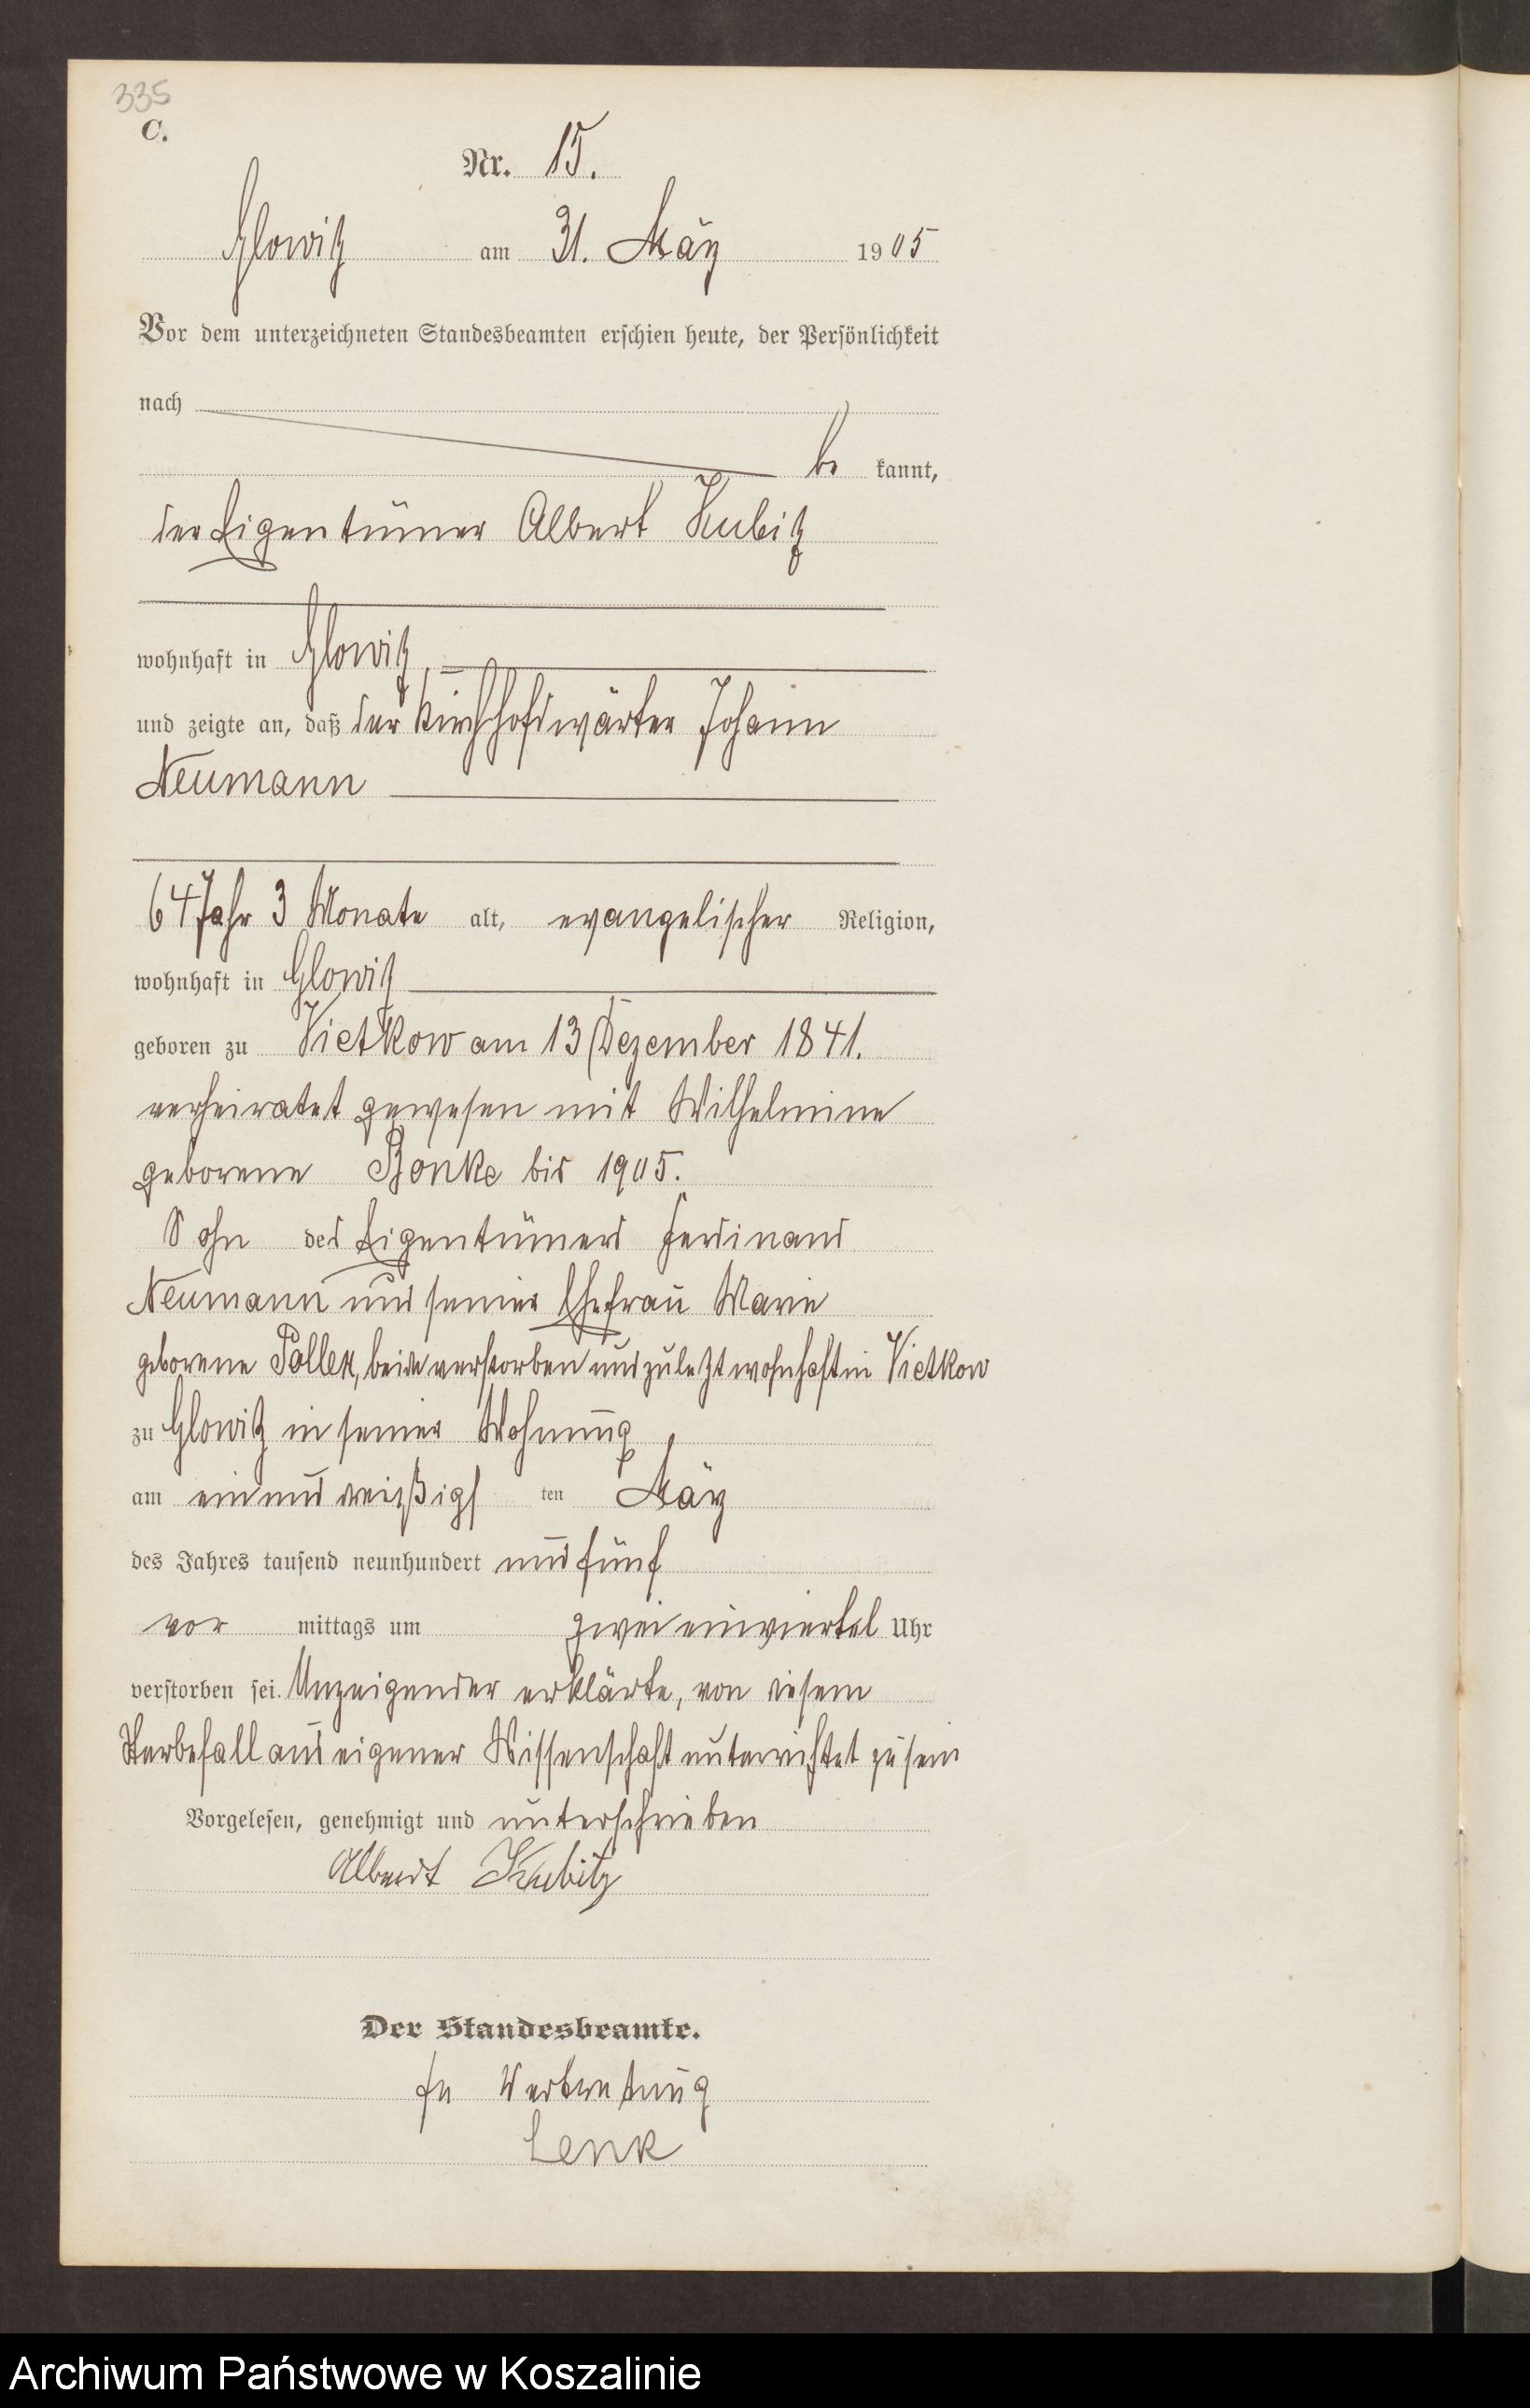 335
C.
Nr. 15.
Glowitz am 31. März 1905
Vor dem unterzeichneten Standesbeamten erschien heute, der Persönlichkeit
nach
be kannt,
der Eigentümer Albert Kubitz
wohnhaft in Glowitz,
und zeigte an, daß der Kirchhofswärter Johann
Neumann
64 Jahr 3 Monate alt, evangelischer Religion,
wohnhaft in Glowitz
geboren zu Vietkow am 13 Dezember 1841.
verheiratet gewesen mit Wilhelmine
geborene Bonke bis 1905.
Sohn des Eigentümers Ferdinand
Neumann und seiner Ehefrau Marie
geborene Pollex, beide verstorben und zuletzt wohnhaft in Vietkow
zu Glowitz in seiner Wohnung
am einunddreißigs ten März
des Jahres tausend neunhundert und fünf
vor mittags um zwei einviertel Uhr
verstorben sei. Anzeigender erklärte, von diesem
Sterbefall aus eigener Wissenschaft unterrichtet zu sein
Vorgelesen, genehmigt und unterschrieben
Albert Kubitz
Der Standesbeamte.
In Vertretung
Lenk
Archiwum Państwowe w Koszalinie